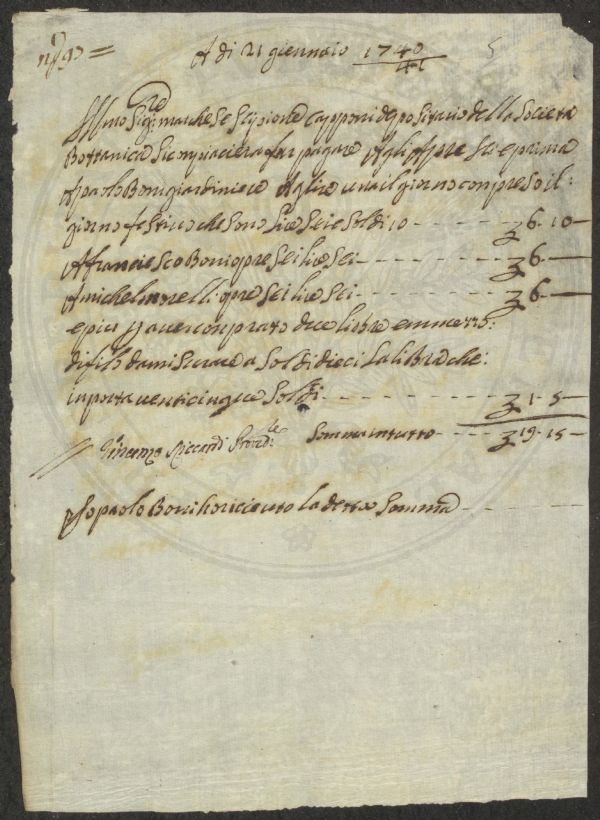 A di 21 gennaio 1740 5
41
Ill̃mo Sig.re marchese Scipione Capponi depositario della Società
Bottanica Si compiacierà far pagare Agli Apre Sei e prima
A paolo Boni giardiniere A lire una il giorno conpreso il:
giorno festivo che Sono lire Sei e Soldi 10 - - - - 6 - 10 -
A franciesco Boni opre Sei lire Sei - - - - 6 - -
A michel morelli opre Sei lire Sei - - - - 6 - -
e piu p aver conprato duce libre e mmezzo:
di filo da misurare a Soldi dieci la libra che:
inporta venticinque Soldi - - - - 1 - 5 -
Vincenzo Riccardi Proved.re Somma in tutto - - - - 19 - 15 -
Io paolo Boni ho ricieuto la detta Somma - - - -